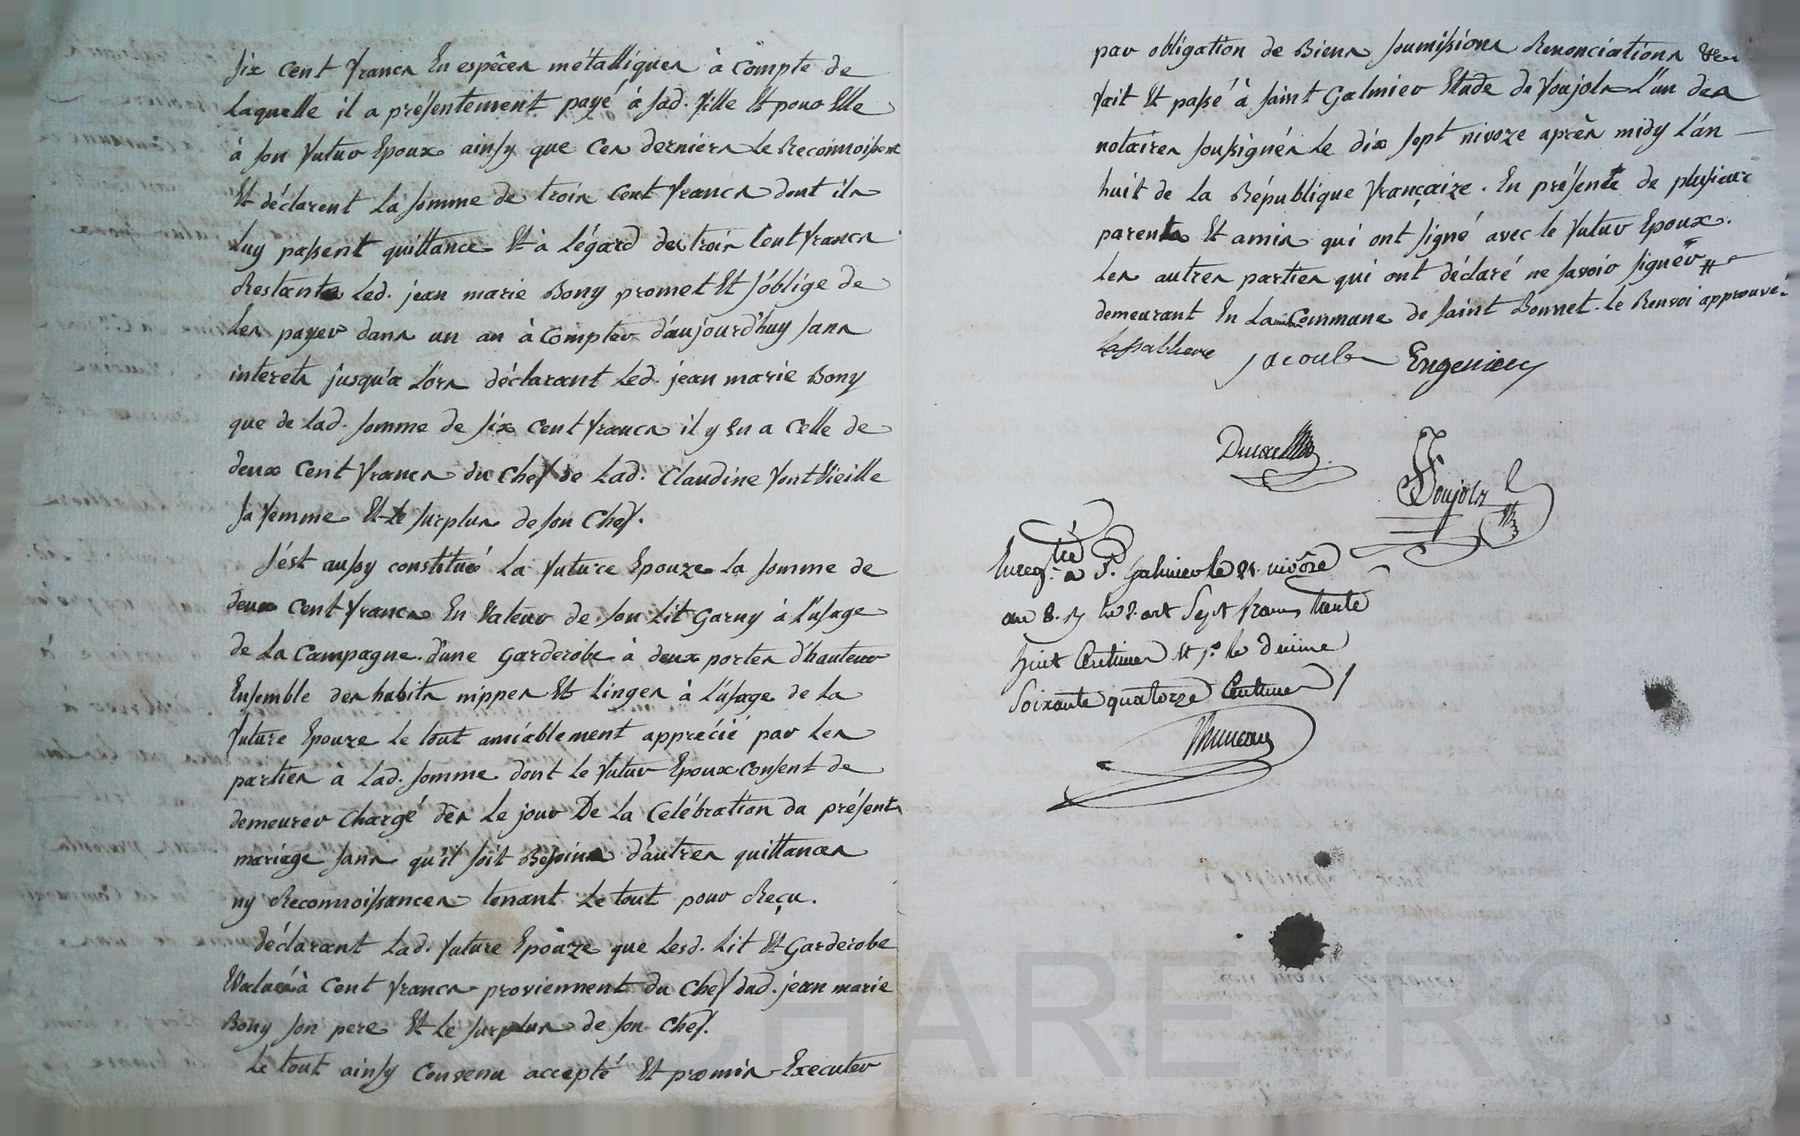 six cent francs En espêces métalliques à compte de
Laquelle il a présentement payé à sad. fille Et pour Elle
à son futur Epoux ainsy que ces derniers Le Reconnoissent
Et déclarent La somme de trois cent francs dont ils
Luy passent quittance Et à légard des trois Cent francs
Restants Led. jean marie Bony promet Et s'oblige de
Les payer dans un an à compter d'aujourd'huy sans
interets jusqu'a Lors déclarant Led. jean marie Bony
que de Lad. somme de six cent francs il y En a Celle de
deux Cent francs du Chef de Lad. Claudine fontVieille
sa femme Et Le surplus de son Chef.
s'ést aussy constitué La future Epouze La somme de
deux cent francs En Valeur de son Lit Garny à L'usage
de La Campagne. d'une Garderobe à deux portes d'hauteur
Ensemble des habits nippes Et Linges à L'usage de La
future Epouze Le tout amiablement apprécié par Les
parties à Lad. somme dont Le futur Epoux Consent de
demeurer Chargé dès Le jour De La Celébration du présent
mariage sans qu'il soit Besoins d'autres quittances
ny Reconnoissances tenant Le tout pour Reçu.
déclarant Lad. future Epouze que Lesd. Lit Et Garderobe
Evalués à Cent francs proviennent du Chef dud. jean marie
Bony son pere Et Le surplus de son Chef.
Le tout ainsy Convenu accepté Et promis Executer
par obligation de Biens soumissions Renonciations &en
fait Et passé à saint Galmier Etude de foujols L'un des
notaires soussignés Le dix sept nivoze après midy L'an
huit de La République françaize. En présente de plusieurs
parents Et amis qui ont signé avec le futur Epoux.
Les autres parties qui ont déclaré ne savoir signer #
demeurant En La Commune de saint Bonnet. Le Renvoi approuvé.
Jacoub Engenieu
foujols
Enregtré à St. Galmier le 21 nivôse
an 8. Sept francs trente
huit Centimes Et pr. le decime
Soixante quatorze Centimes
CHAREYRON